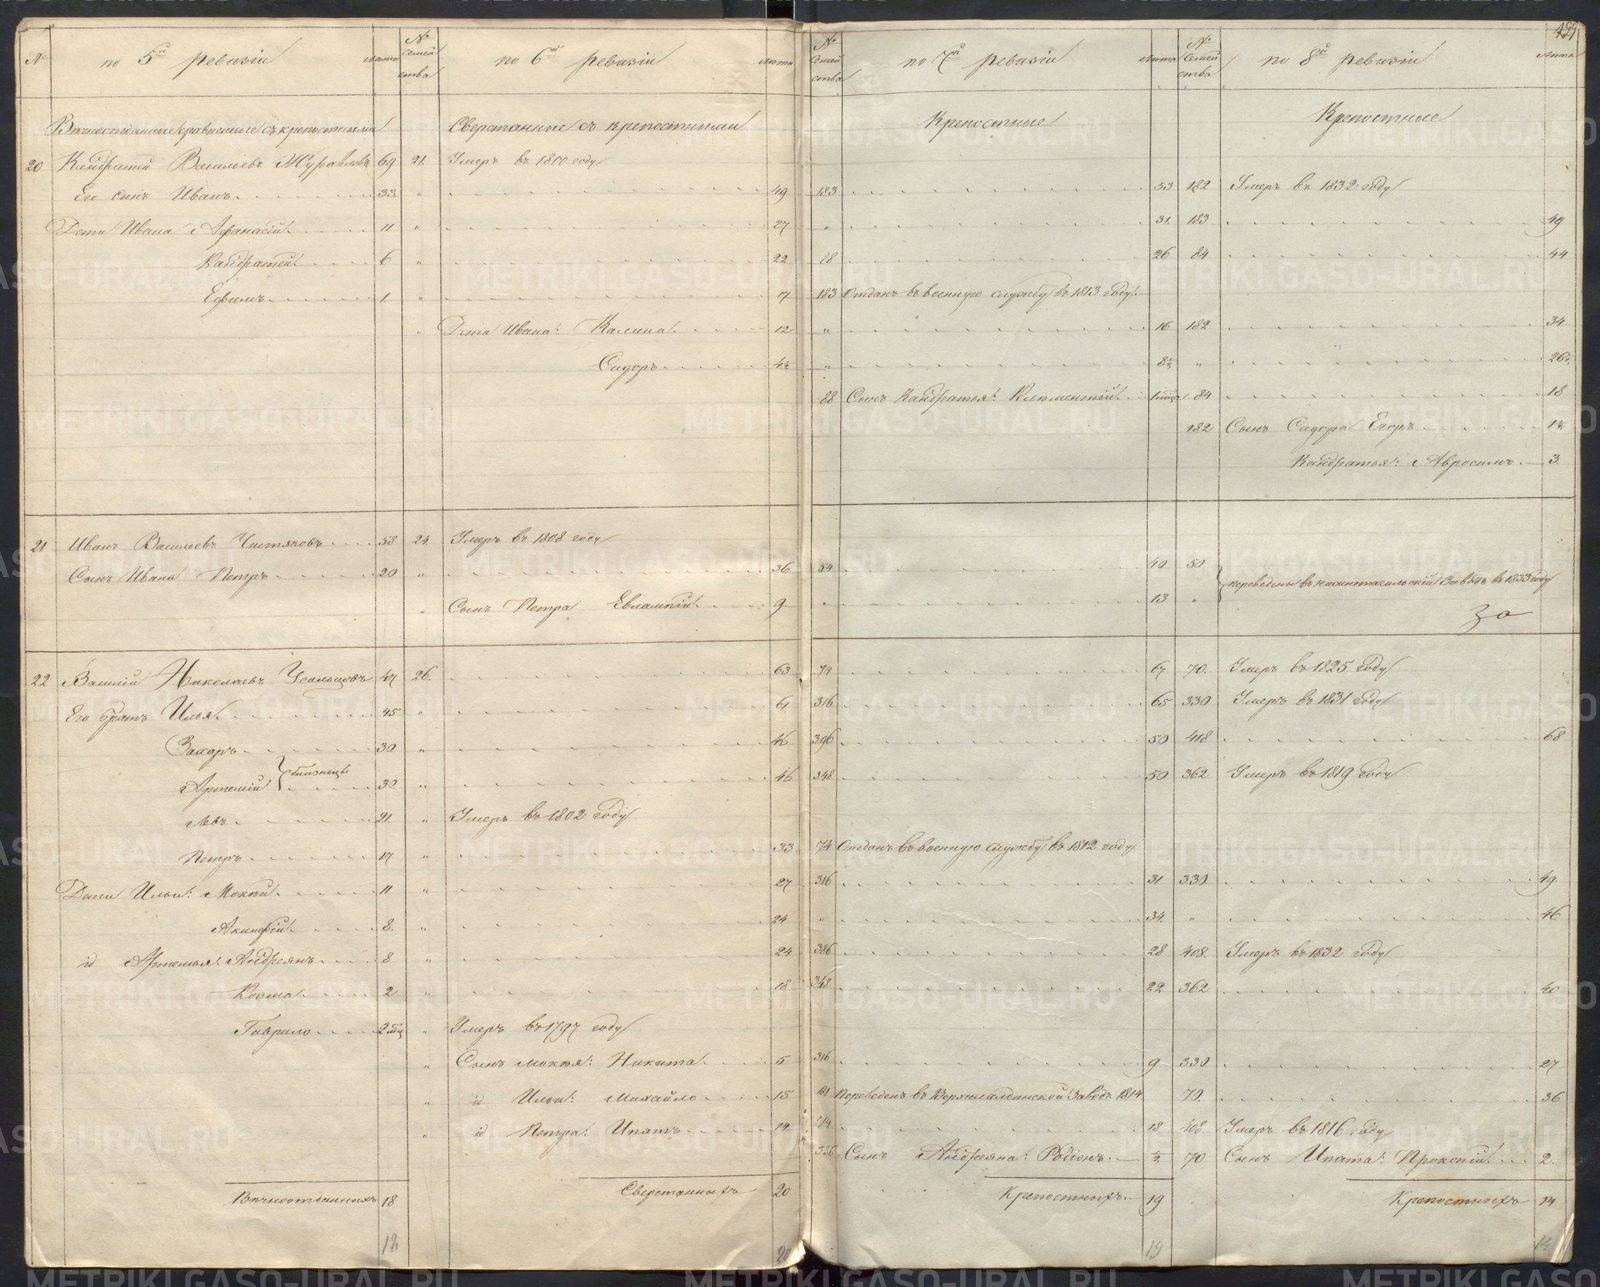 № по 5й ревизіи лѣта № семейства по 6й ревизіи лѣта № семейства по 7й ревизіи лѣта № семейства по 8й ревизіи лѣта
Сверстанные съ крепостными Крепостные Крепостные
20 Кандратей Васильевъ Журавлевъ 69 21. Умеръ въ 1800 году
Его сынъ Иванъ 33 " 49 183 53 182 Умеръ въ 1832 году
Дети Ивана: Афанасій 11 " 27 " 31. 183 49
Кандратей 6 " 22 88 26 84 44
Ефимъ 1. " 17 183 Отданъ въ военную службу въ 1813 году.
" Дети Ивана: Калина 12 " 16 182 34
Сидоръ " " 26
88 Сынъ Кандратья: Климентій 84 18
182 Сынъ Сидора Егоръ
Кандратья: Авросимъ 3.
21 Иванъ Васильевъ Чистяковъ 53 24. Умеръ въ 1808 году
Сынъ Ивана Петръ 20 " 36 54 40 50
" Сынъ Петра Евлампій 9 " 13 " переведены въ нижнетагильскій Заводъ въ 1833 году
22 Василій Николаевъ Усольцовъ 47 26. 63 74 67 70. Умеръ въ 1825 году
Его братъ Илья 45 " 61 316 65 330 Умеръ въ 1831 году
Захаръ 30 " 46 396 50 418 68
Артемій близнецы 30 " 46 348 50 362 Умеръ въ 1819 году
Левъ 21. " Умеръ въ 1802 году
Петръ 17 " 33 74 Отданъ въ военную службу въ 1812 году
Дети Ильи: Мокей 11 " 27 316 31 330 49.
Акинфій 8. " 24 " 34 " 46
id Артемья: Андреянъ 8 " 24 386 28 408. Умеръ въ 1832 году
Козма 2 " 18 348 22 362 40
Гаврило " Умеръ въ 1797 году
" Сынъ Мокея: Никита 5 316 9 330 27
" id Ильи: Михайло 15 Переведенъ въ Верхнесалдинской Заводъ 1814 70. 36
" id Петра: Ипатъ 14. 74 18 408 Умеръ въ 1816 году
Сынъ Андреяна: Родіонъ 70 Сынъ Ипата: Прокопій 2.
Вѣчноотданныхъ 18 Сверстанныхъ 20 Крепостныхъ 19 Крепостныхъ 14
18 20 19 14
METRIKI.GASO-URAL.RU